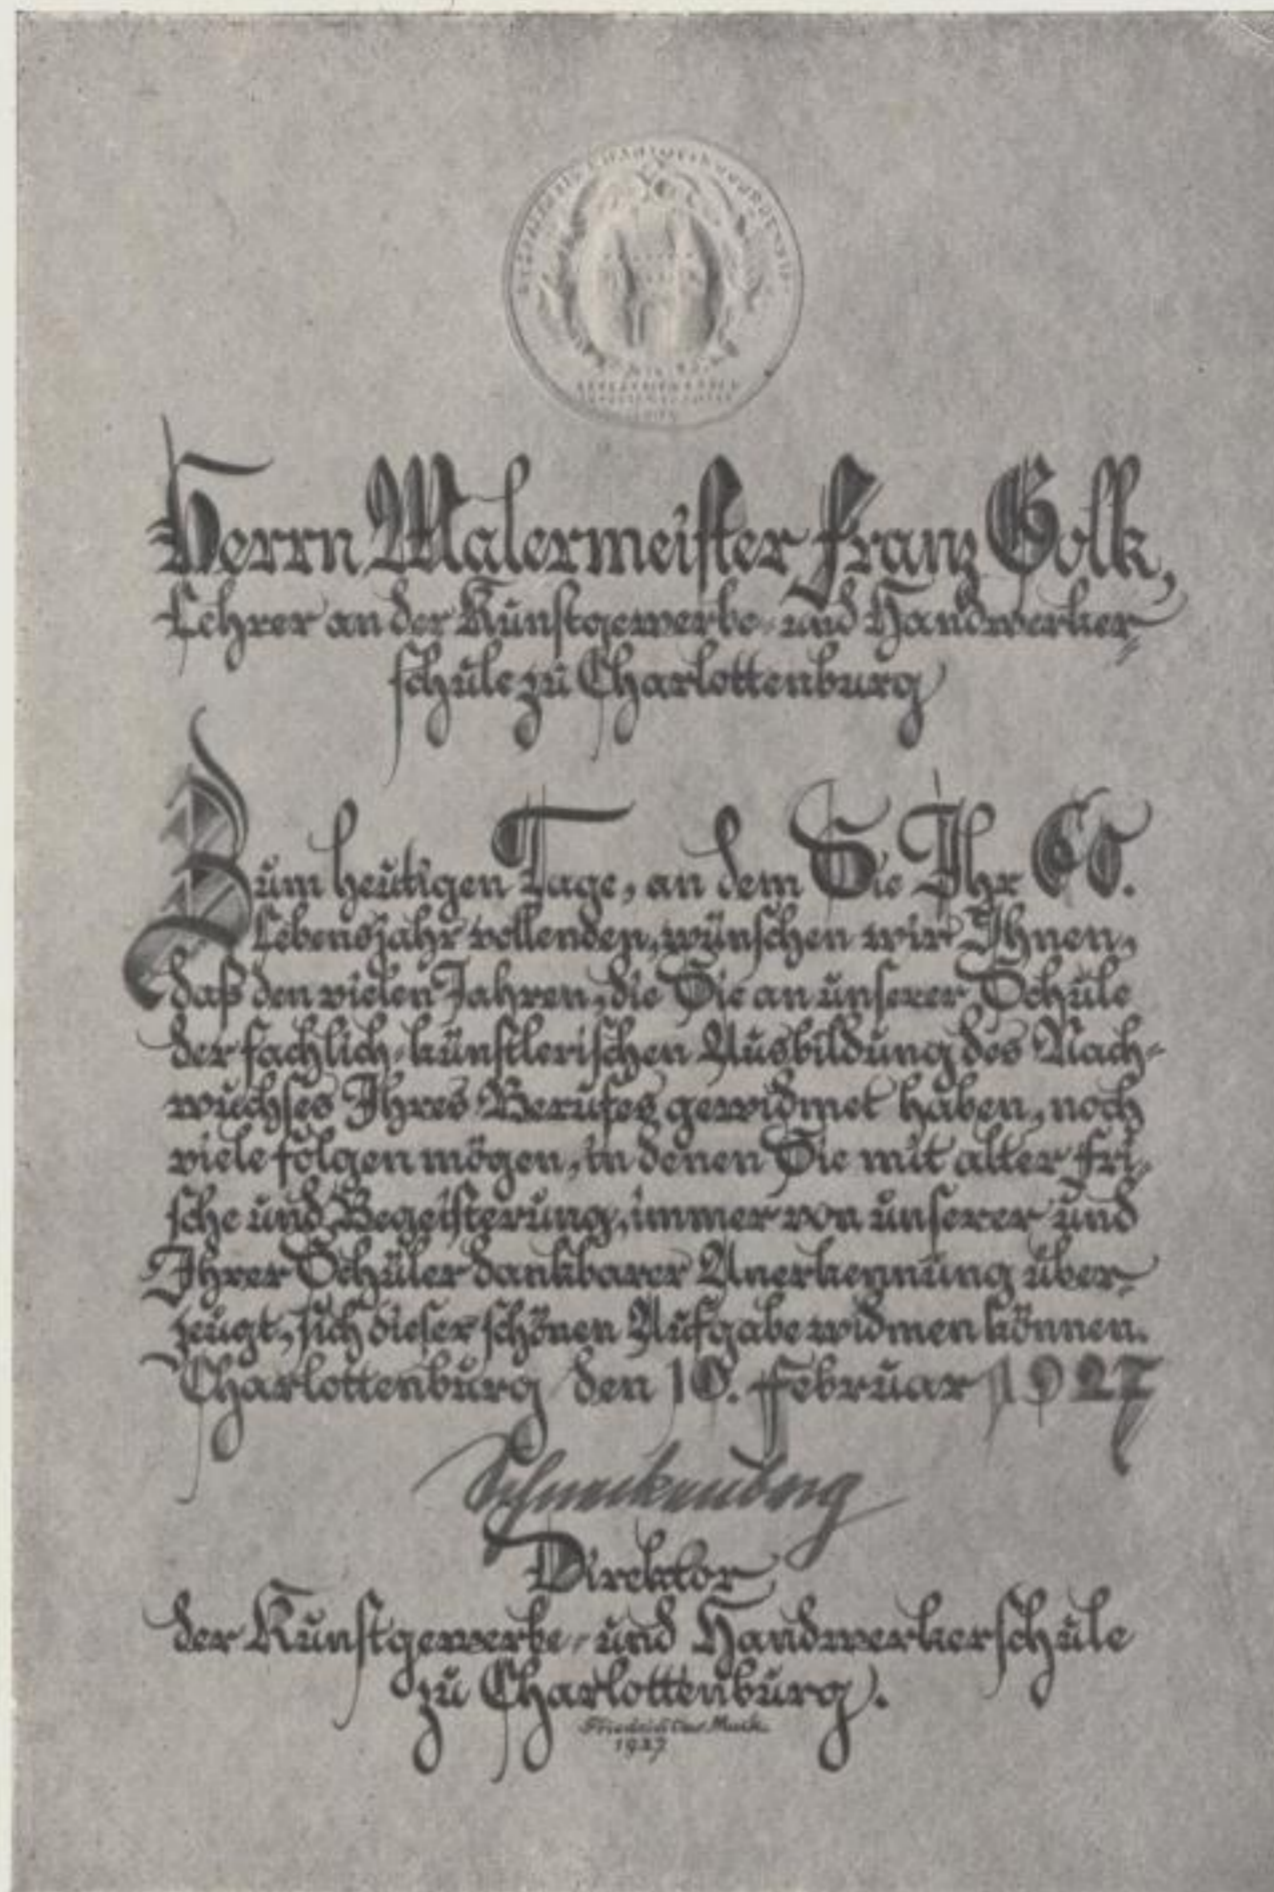 Herrn Malermeister Franz Golk,
Lehrer an der Kunstgewerbe- und Handwerker-
schule zu Charlottenburg
Zum heutigen Tage, an dem Sie Ihr 60.
Lebensjahr vollenden, wünschen wir Ihnen,
daß den vielen Jahren, die Sie an unserer Schule
der fachlich-künstlerischen Ausbildung des Nach-
wuchses Ihres Berufes gewidmet haben, noch
viele folgen mögen, in denen Sie mit alter Fri-
sche und Begeisterung, immer von unserer und
Ihrer Schüler dankbarer Anerkennung über-
zeugt, sich dieser schönen Aufgabe widmen können.
Charlottenburg den 10. Februar 1927
Direktor
der Kunstgewerbe- und Handwerkerschule
zu Charlottenburg.
1927